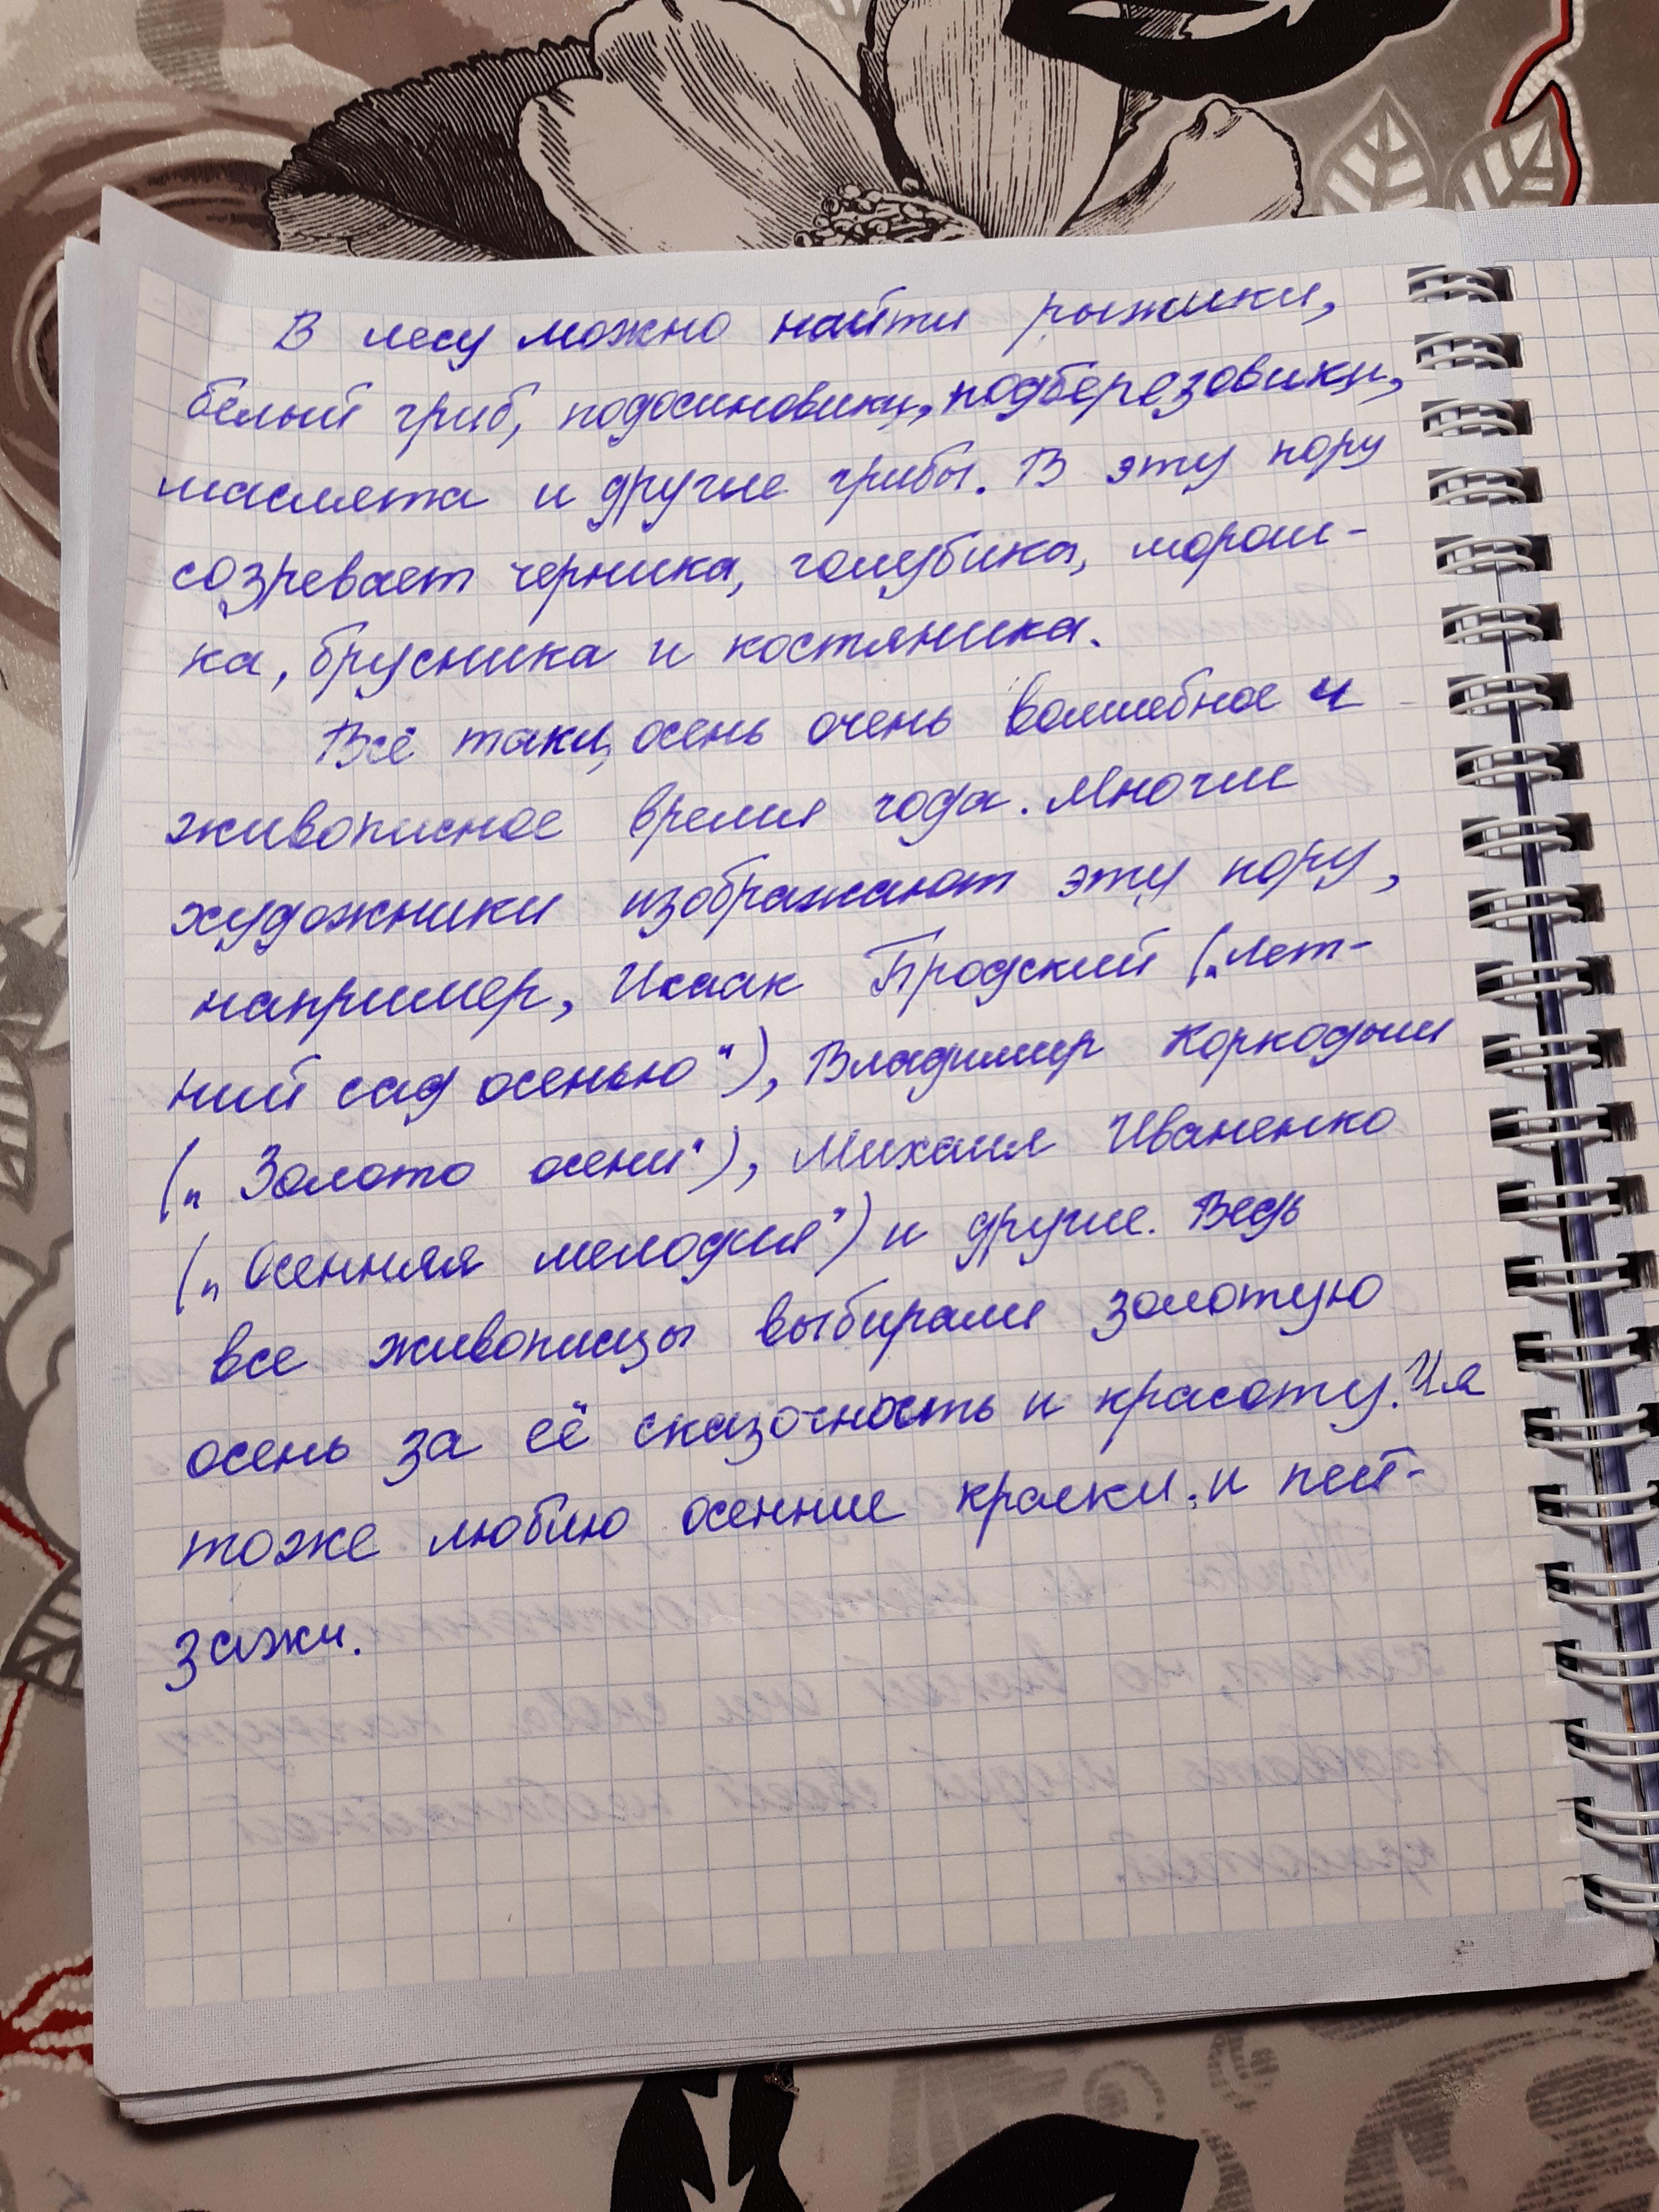 В лесу можно найти рыжики,
белый гриб, подосиновики, подберезовики,
маслята и другие грибы. В эту пору
созревает черника, голубика, морош-
ка, брусника и костяника.
Всё таки, осень очень волшебное и
живописное время года. Многие
художники изображают эту пору,
например, Исаак Бродский („Лет-
ний сад осенью"), Владимир Коркодым
(„Золото осени"), Михаил Иваненко
(„Осенняя мелодия") и другие. Ведь
все живописцы выбирали золотую
осень за её сказочность и красоту. И я
тоже люблю осенние краски и пей-
зажи.